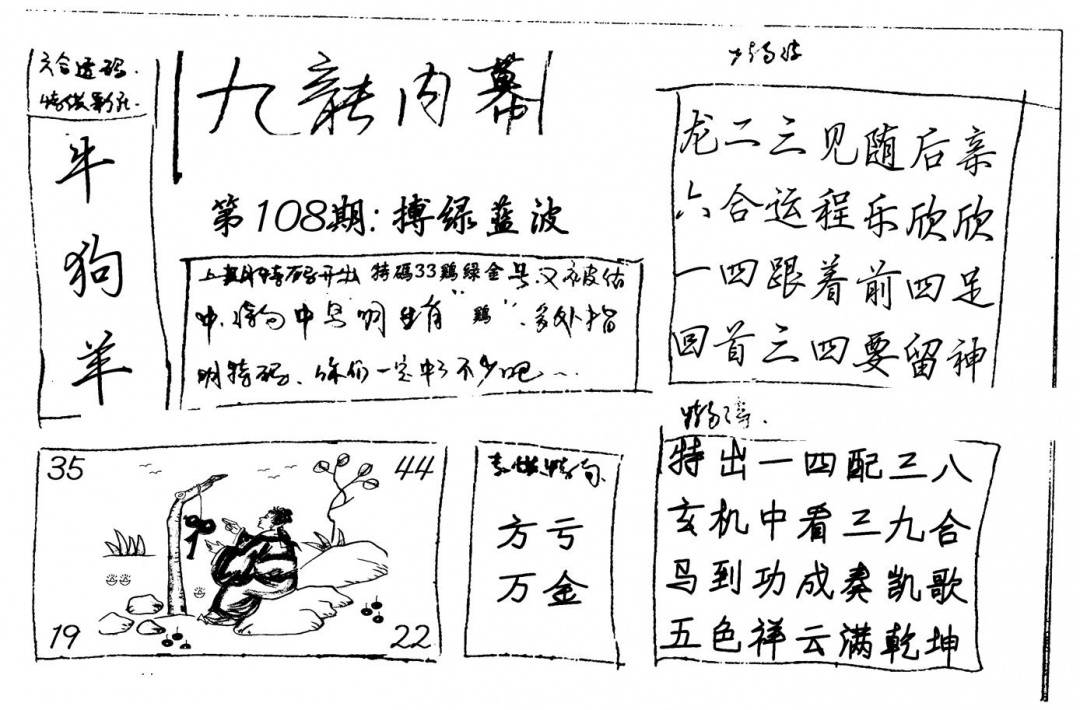 六合透码.
牛
狗
羊
九龍内幕
第108期:搏绿蓝波
上期特码开出 特碼33鷄绿金号又被估
中, 中 明 生肖“鷄”, 多处指
明特码, 你们一定中了不少吧~
龙二三见随后亲
六合运程乐欣欣
一四跟着前四足
回首三四要留神
35
44
19
22
方亏
万金
特出一四配三八
玄机中看三九合
马到功成奏凯歌
五色祥云满乾坤